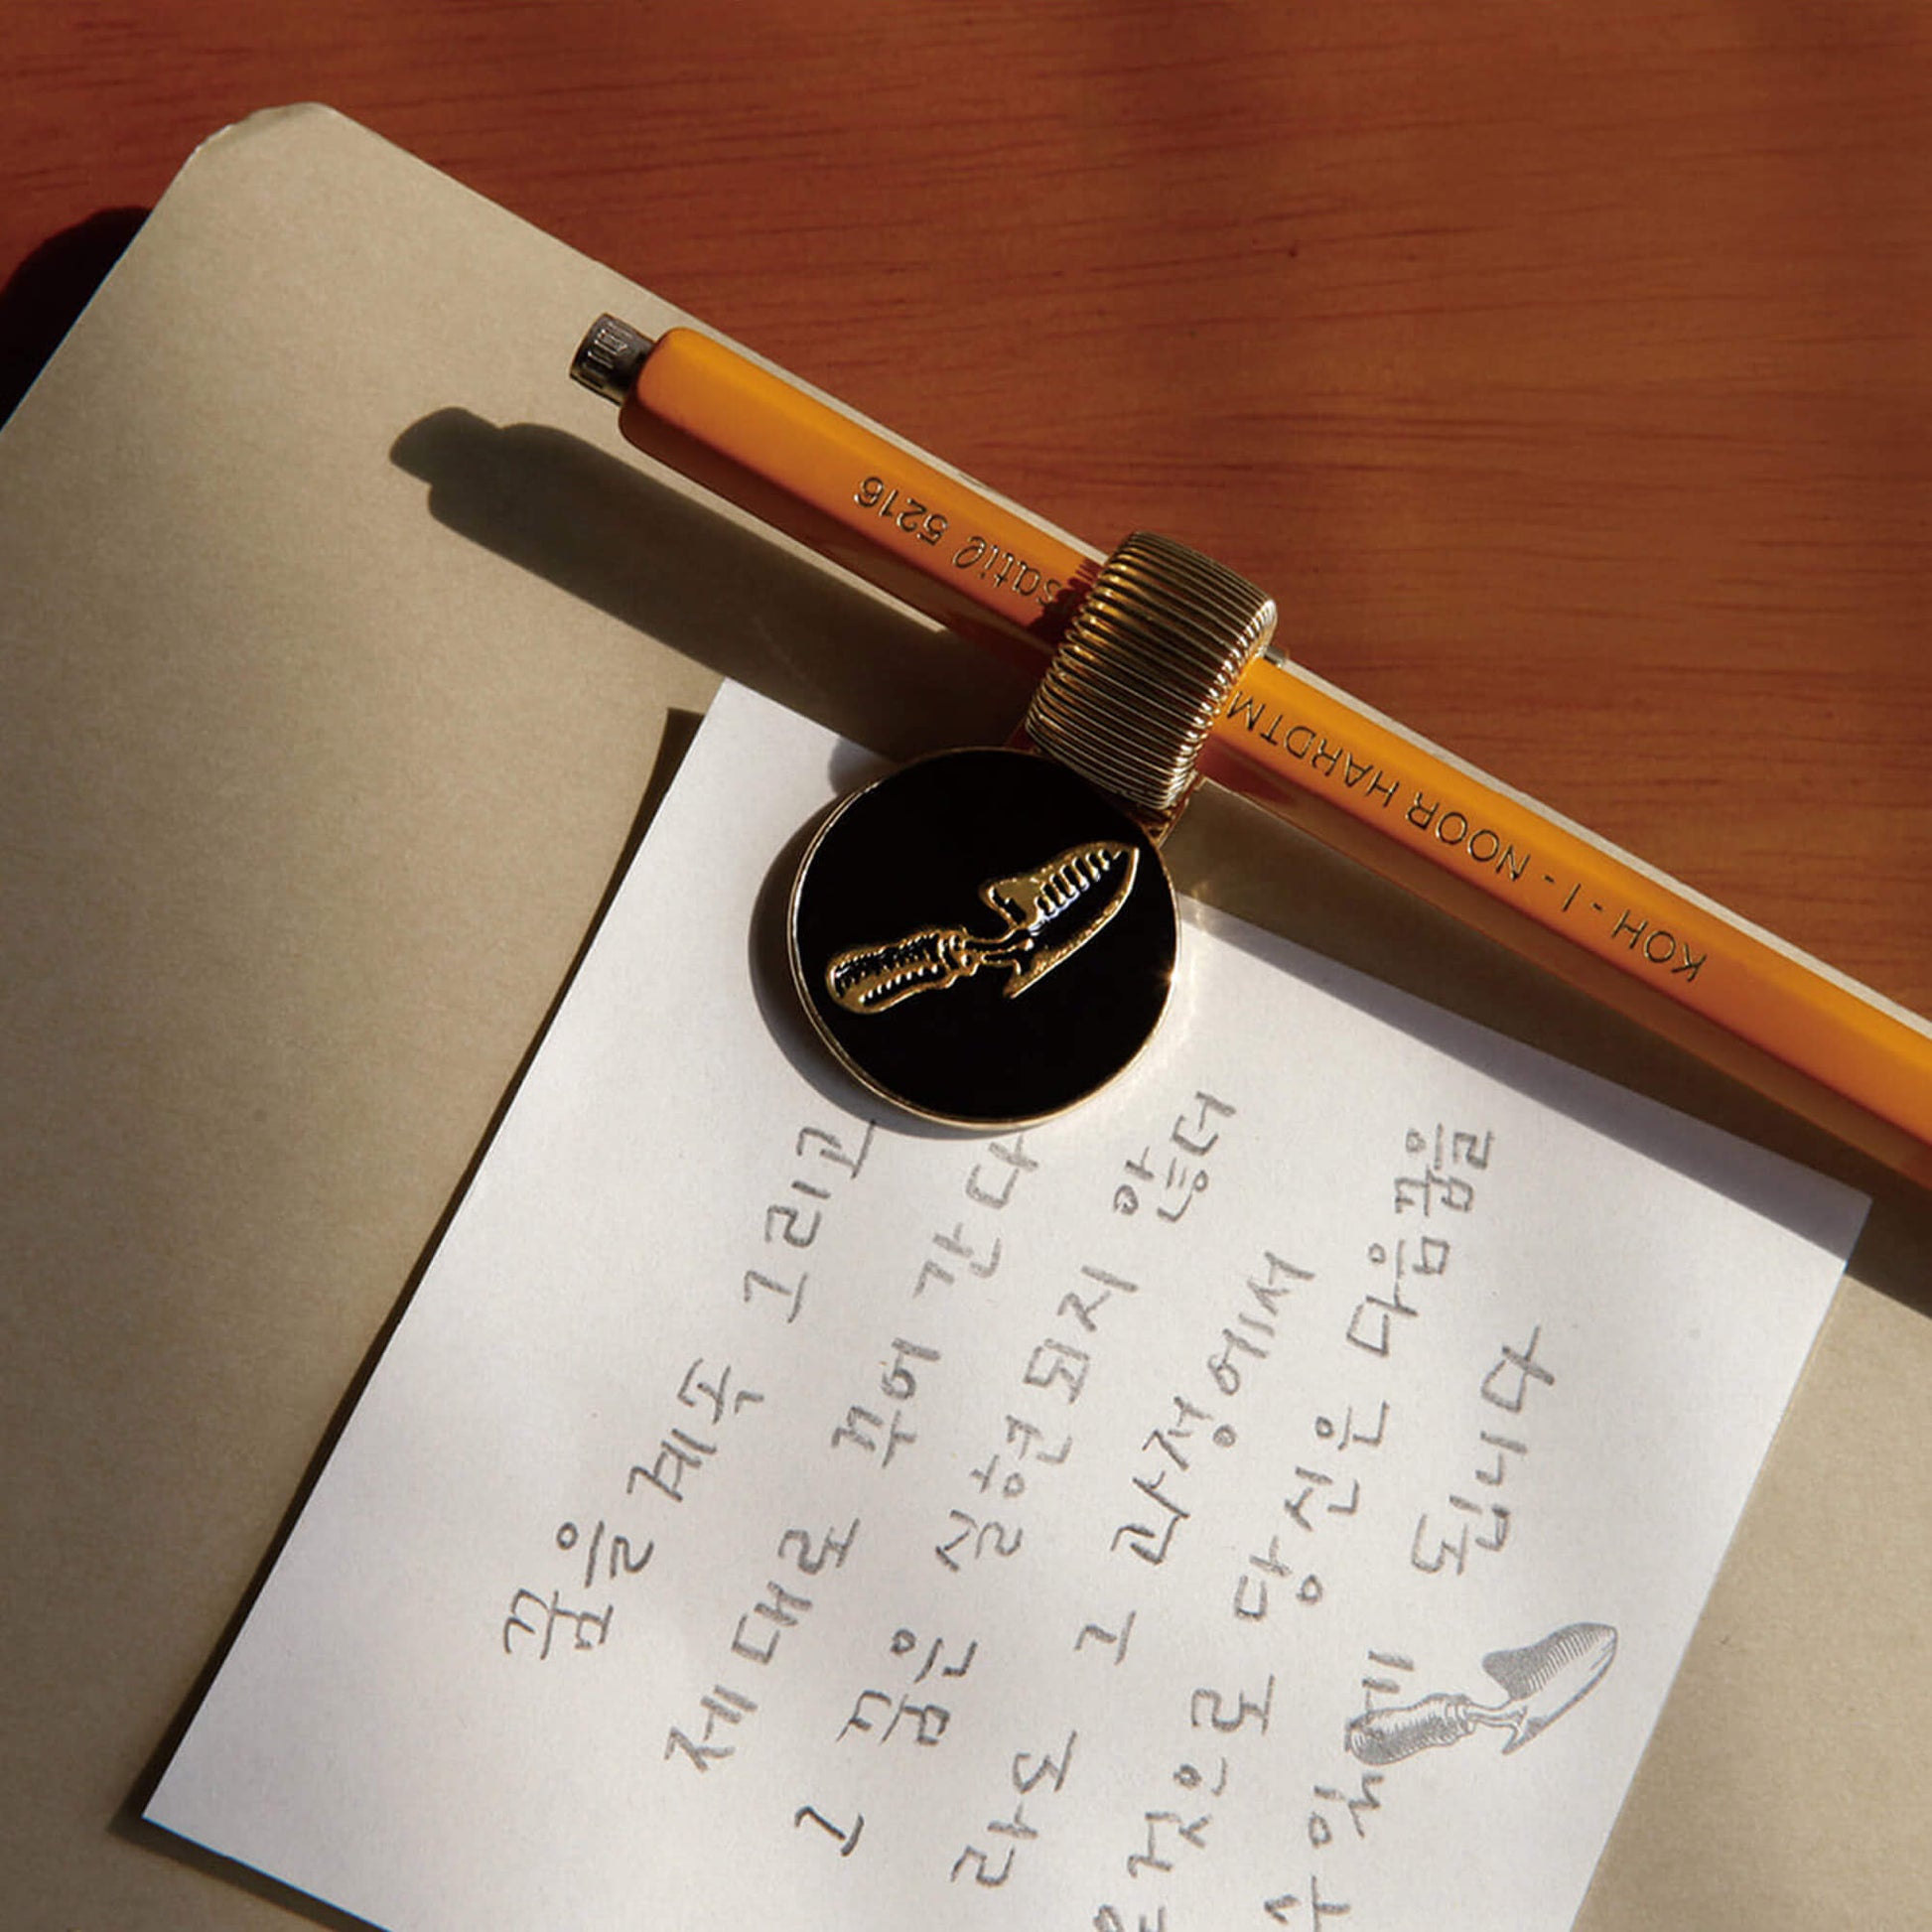 satil 5216
KOH-I-NOOR HARDTM
꿈을 계속 그리고
제대로 꾸어 간다
그 꿈은 실현되지 않더
라도 그 과정에서
것으로 당신은 다음 꿈을
수 있게 됩니다